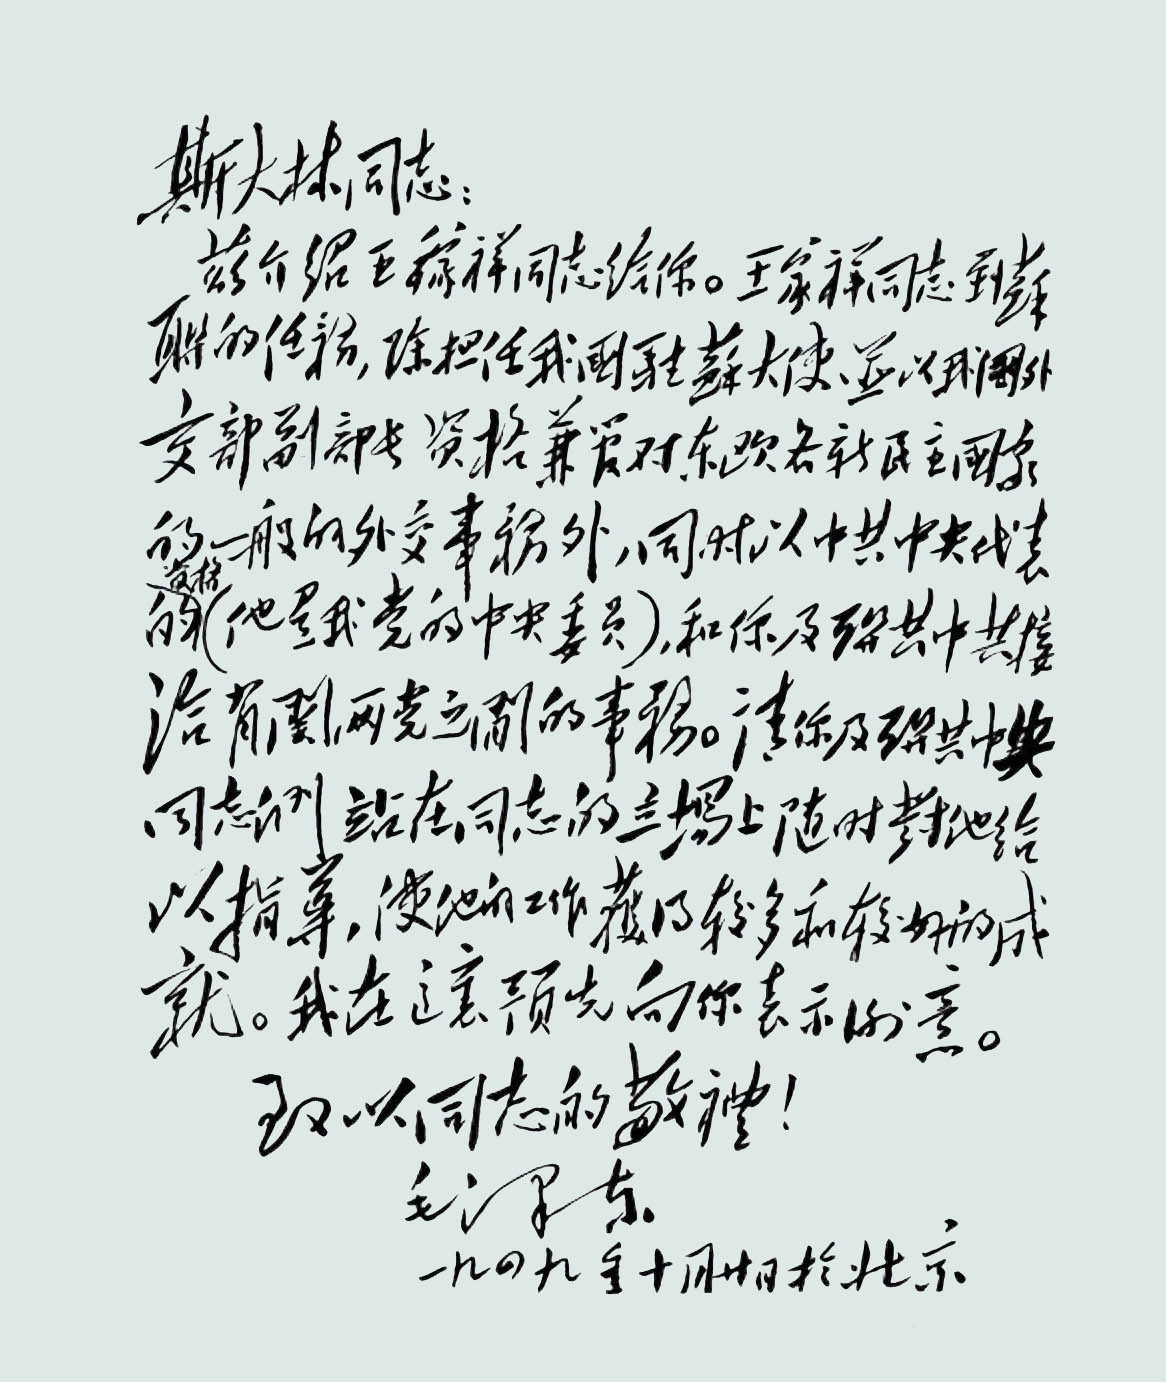 斯大林同志：
兹介绍王稼祥同志给你。王家祥同志到蘇
聯的任務，除担任我國駐蘇大使、並以我國外
交部副部长资格兼管对东欧各新民主國家
的一般的外交事務外，同时以中共中央代表
资格
的(他是我党的中央委員)，和你及聯共中共接
洽有関两党之間的事務。请你及聯共中央
同志们站在同志的立場上随时對他给
以指導，使他的工作獲得较多和较好的成
就。我在這裏预先向你表示谢意。
致以同志的敬禮！
毛泽东
一九四九年十月廿日於北京